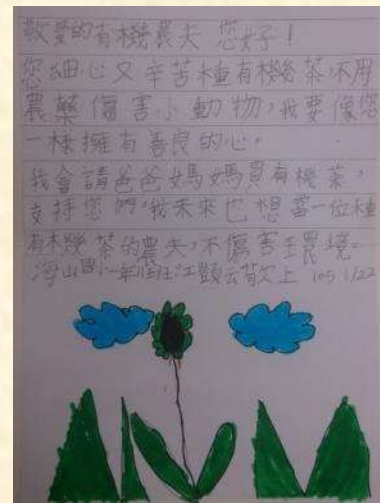 敬愛的有機農夫 您好！
您細心又辛苦種有機茶，不用
農藥傷害小動物，我要像您
一樣擁有善良的心。
我會請爸爸媽媽買有機茶，
支持您們。我未來也想當一位種
有機茶的農夫，不傷害環境。
海山國小一年 班江顗云敬上 105 1/22